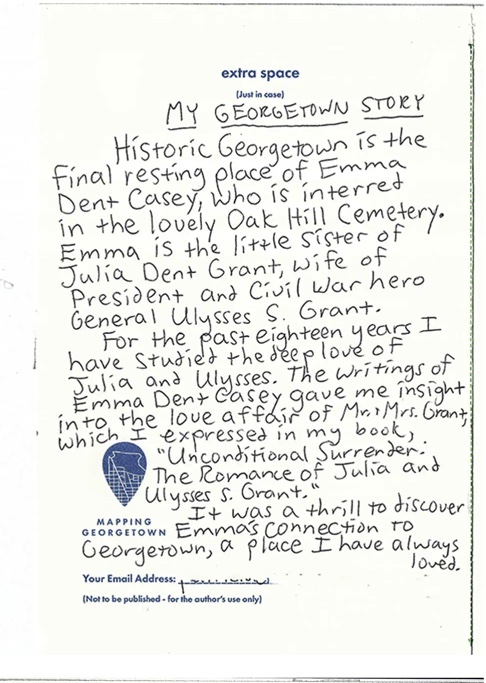 extra space
(Just in case)
MY GEORGETOWN STORY
Historic Georgetown is the
final resting place of Emma
Dent Casey, who is interred
in the lovely Oak Hill Cemetery.
Emma is the little sister of
Julia Dent Grant, wife of
President and Civil War hero
General Ulysses S. Grant.
For the past eighteen years I
have studied the deep love of
Julia and Ulysses. The writings of
Emma Dent Casey gave me insight
into the love affair of Mr. & Mrs. Grant,
which I expressed in my book,
"Unconditional Surrender:
The Romance of Julia and
Ulysses S. Grant."
It was a thrill to discover
MAPPING
GEORGETOWN
Emma's connection to
Georgetown, a place I have always
loved.
Your Email Address:
(Not to be published - for the author's use only)